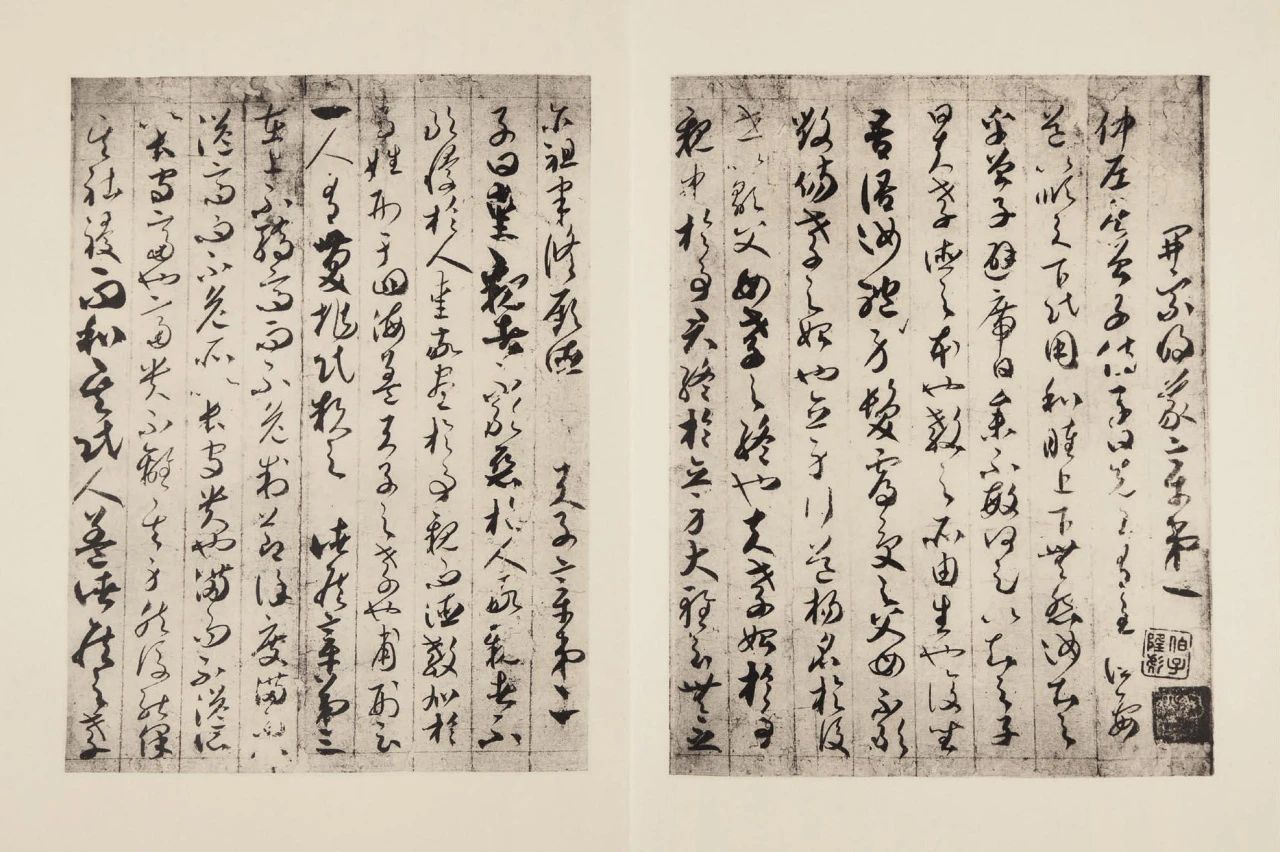 開宗明義章第一
仲尼居曾子侍子曰先王有至德要
道以順天下民用和睦上下無怨汝知之
乎曾子避席曰參不敏何足以知之子
曰夫孝德之本也教之所由生也復坐
吾語汝體身髮膚受之父母不敢
毀傷孝之始也立身行道揚名於後
世以顯父母孝之終也夫孝始於事
親中於事君終於立身大雅云無
尒祖聿脩厥德 天子章第二
子曰愛親者不敢惡於人敬親者不
敢慢於人愛敬盡於事親而德教加於
百姓刑于四海蓋天子之孝也甫刑云
一人有慶兆民賴之 諸侯章第三
在上不驕高而不危制節謹度滿而不
溢高而不危所以長守貴也滿而不溢所
以長守富也富貴不離其身然後能保
其社稷而和其民人蓋諸侯之孝